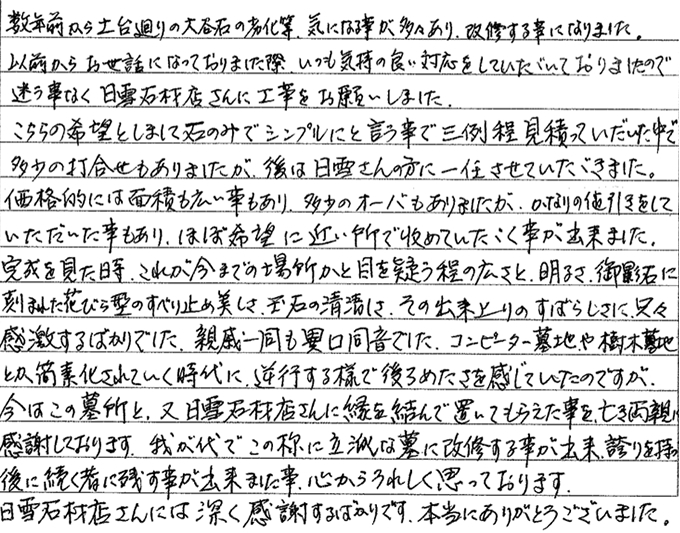 数年前から土台廻りの大谷石の劣化等、気になる事が多々あり、改修する事になりました。
以前からお世話になっておりました際、いつも気持の良い対応をしていただいておりましたので
迷う事なく日雪石材店さんに工事をお願いしました。
こちらの希望としまして石のみでシンプルにと言う事で三例程見積っていただいた中で
多少の打合せもありましたが、後は日雪さんの方に一任させていただきました。
価格的には面積も広い事もあり、多少のオーバもありましたが、かなりの値引きをして
いただいた事もあり、ほぼ希望に近い所で収めていただく事が出来ました。
完成を見た時、これが今までの場所かと目を疑う程の広さと、明るさ、御影石に
刻まれた花びら型のすべり止め美しさ、玉石の清潔さ、その出来上りのすばらしさに、只々
感激するばかりでした。親戚一同も異口同音でした。コンピーター墓地や樹木墓地
とか簡素化されていく時代に、逆行する様で後ろめたさを感じていたのですが、
今はこの墓所と、又日雪石材店さんに縁を結んで置いてもらえた事を、亡き両親に
感謝しております。我が代でこの様に立派な墓に改修する事が出来、誇りを持っ
後に続く者に残す事が出来ました事、心からうれしく思っております。
日雪石材店さんには深く感謝するばかりです。本当にありがとうございました。